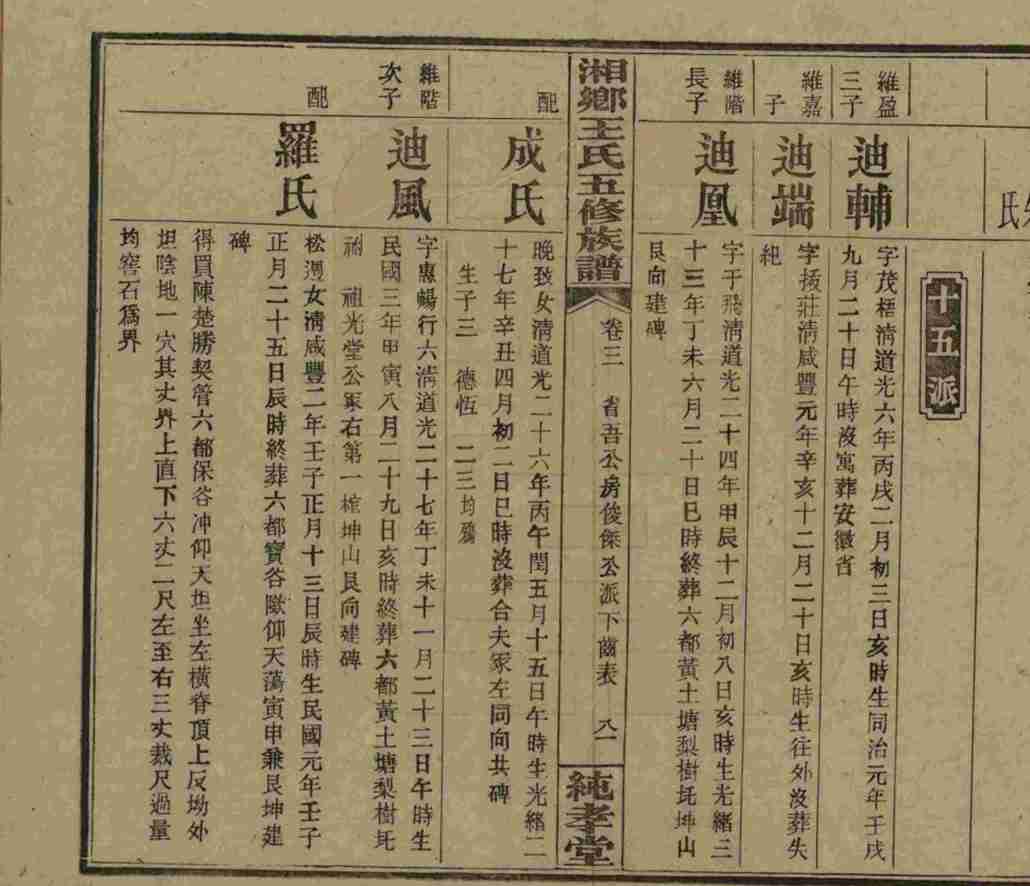 氏
十五派
維盈
三子
迪輔
字茂梧淸道光六年丙戌二月初三日亥時生同治元年壬戌
九月二十日午時沒寓葬安徽省
維嘉
子
迪端
字援莊淸咸豐元年辛亥十二月二十日亥時生往外沒葬失
紀
維階
長子
迪凰
字于飛淸道光二十四年甲辰十二月初八日亥時生光緒三
十三年丁未六月二十日巳時終葬六都黃土塘梨樹坉坤山
艮向建碑
湘鄉王氏五修族譜
卷三 省吾公房俊傑公派下齒表 八一
純孝堂
配
成氏
晚致女淸道光二十六年丙午閏五月十五日午時生光緒二
十七年辛丑四月初二日巳時沒葬合夫冢左同向共碑
生子三 德恆 二三均殤
維階
次子
迪風
字惠暢行六淸道光二十七年丁未十一月二十三日午時生
民國三年甲寅八月二十九日亥時終葬六都黃土塘梨樹坉
祔 祖光堂公冢右第一棺坤山艮向建碑
配
羅氏
松漫女淸咸豐二年壬子正月十三日辰時生民國元年壬子
正月二十五日辰時終葬六都寶谷歐仰天蕩寅申兼艮坤建
碑
得買陳楚勝契管六都保谷冲仰天坦坐左橫脊頂上反坳外
坦陰地一穴其丈界上直下六丈二尺左至右三丈裁尺過量
均窖石爲界